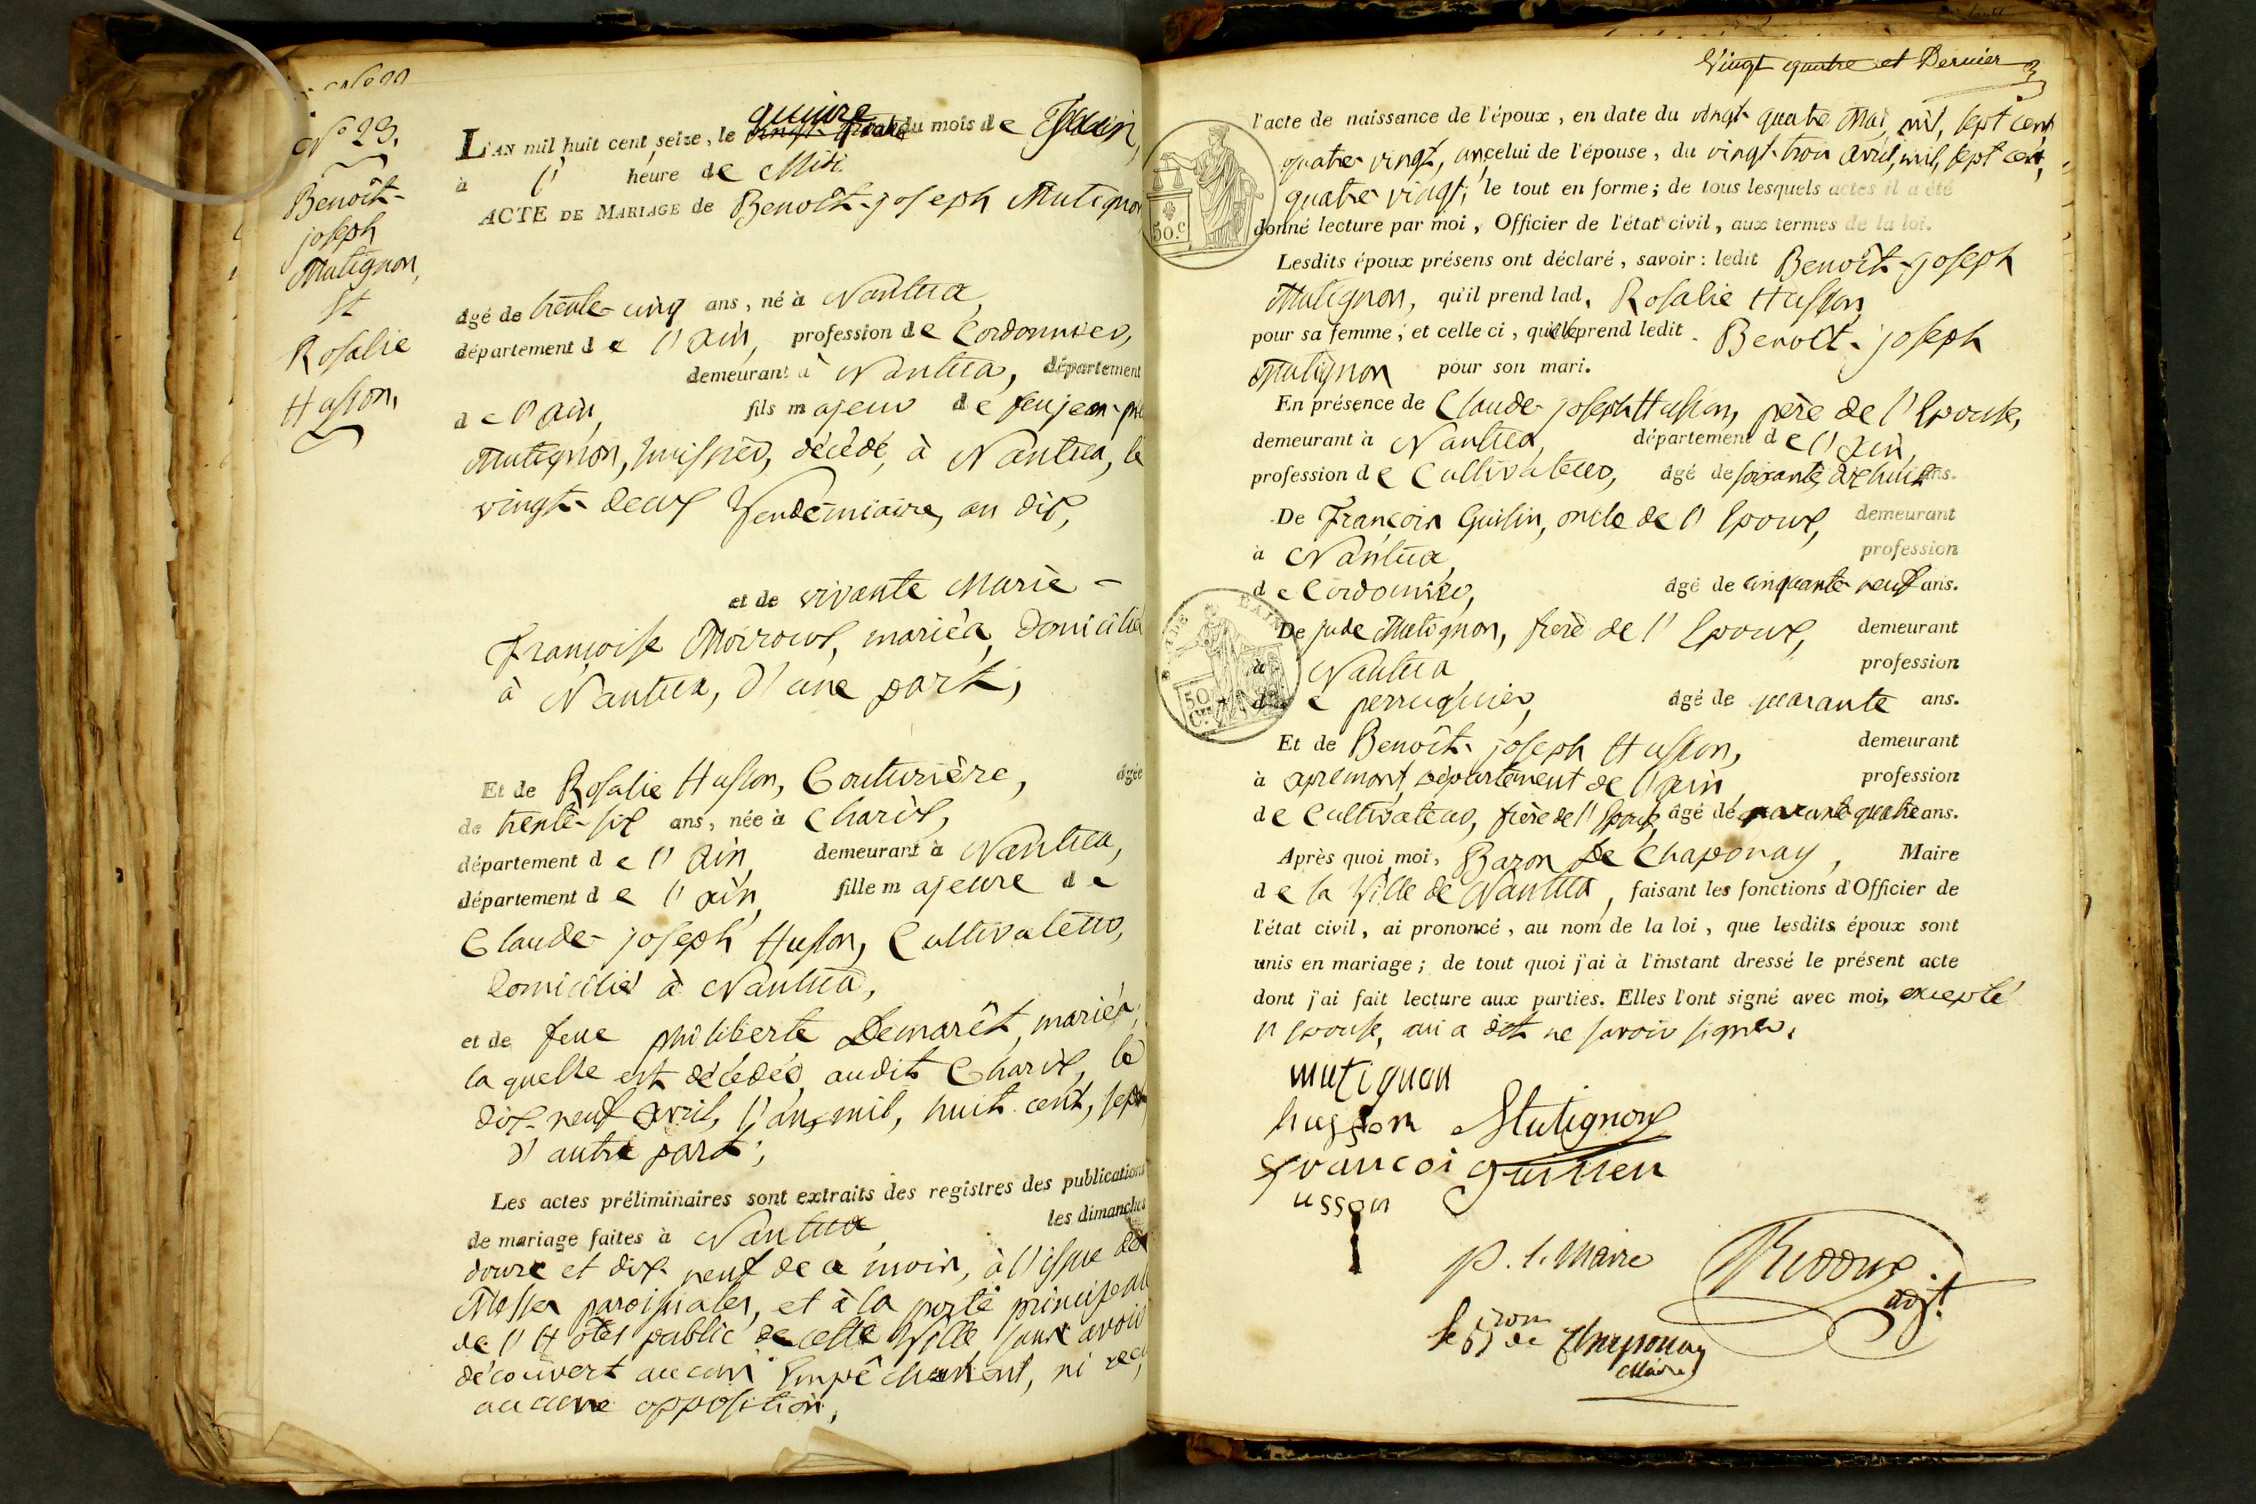 N.º 23.
Benoît-
joseph
Mutignon,
Et
Rosalie
Husson,
quinze
L'AN mil huit cent seize, le vingt- du mois de
à l' heure de Midi
ACTE DE MARIAGE de Benoît-joseph Mutignon
âgé de trente-cinq ans, né à Nantua,
département de l'ain, profession de Cordonnier,
demeurant à Nantua, département
de l'ain, fils majeur de feu jean-
Mutignon, huissier, décédé, à Nantua, le
vingt-deux Vendémiaire, an dix,
et de vivante Marie-
françoise mariés, domicilié
à Nantua, d'une part,
Et de Rosalie Husson, Couturière, âgée
de trente-six ans, née à Charix,
département de l'ain, demeurant à Nantua,
département de l'ain, fille majeure de
Claude-joseph Husson, Cultivateur,
domicilié à Nantua,
et de feue philiberte Demarêt, mariés,
la quelle est décédée audit Charix, le
dix-neuf avril, l'an mil, huit cent, sept
d'autre part;
Les actes préliminaires sont extraits des registres des publications
de mariage faites à Nantua, les dimanches
douze et dix-neuf de ce mois, à l'issue des
Messes paroissiales, et à la porte principale
de l'Hôtel public de cette Ville, sans avoir
découvert aucun Empêchement, ni reçu
aucune opposition,
Vingt quatre et Dernier
l'acte de naissance de l'époux, en date du vingt-quatre Mai, mil, sept cent
quatre vingt, un, celui de l'épouse, du vingt-trois avril, mil, sept cent,
quatre vingt; le tout en forme; de tous lesquels actes il a été
donné lecture par moi, Officier de l'état civil, aux termes de la loi.
Lesdits époux présens ont déclaré, savoir: ledit Benoît-joseph
Mutignon, qu'il prend lad. Rosalie Husson,
pour sa femme; et celle ci, qu'elle prend ledit Benoît-joseph
Mutignon pour son mari.
En présence de Claude-joseph Husson, père de l'Epouse,
demeurant à Nantua, département de l'ain,
profession de Cultivateur, âgé de soixante, dix huit ans.
De françois Guilin, oncle de l'Epoux, demeurant
à Nantua, profession
de Cordonnier, âgé de cinquante-neuf ans.
De jude Mutignon, frère de l'Epoux, demeurant
à Nantua, profession
de perruquier, âgé de quarante ans.
Et de Benoît-joseph Husson, demeurant
à apremont, département de l'ain, profession
de Cultivateur, frère de l'Epouse, âgé de quarante-quatre ans.
Après quoi, moi, Baron De Chaponay, Maire
de la Ville de Nantua, faisant les fonctions d'Officier de
l'état civil, ai prononcé, au nom de la loi, que lesdits époux sont
unis en mariage; de tout quoi j'ai à l'instant dressé le présent acte
dont j'ai fait lecture aux parties. Elles l'ont signé avec moi, excepté
l'Epouse, qui a dit ne savoir signer.
mutignon
husson Mutignon
francoi guillen
usson
p. le Maire
adj.t
le Bron de Chaponay
Maire
50.c
50